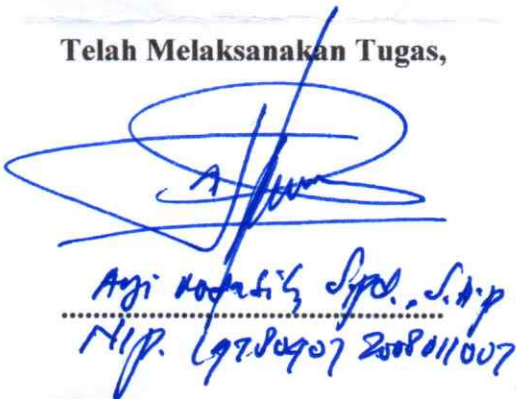 Telah Melaksanakan Tugas,
Ayi S.Pd., S.A.P
NIP. 19780407 2008011007